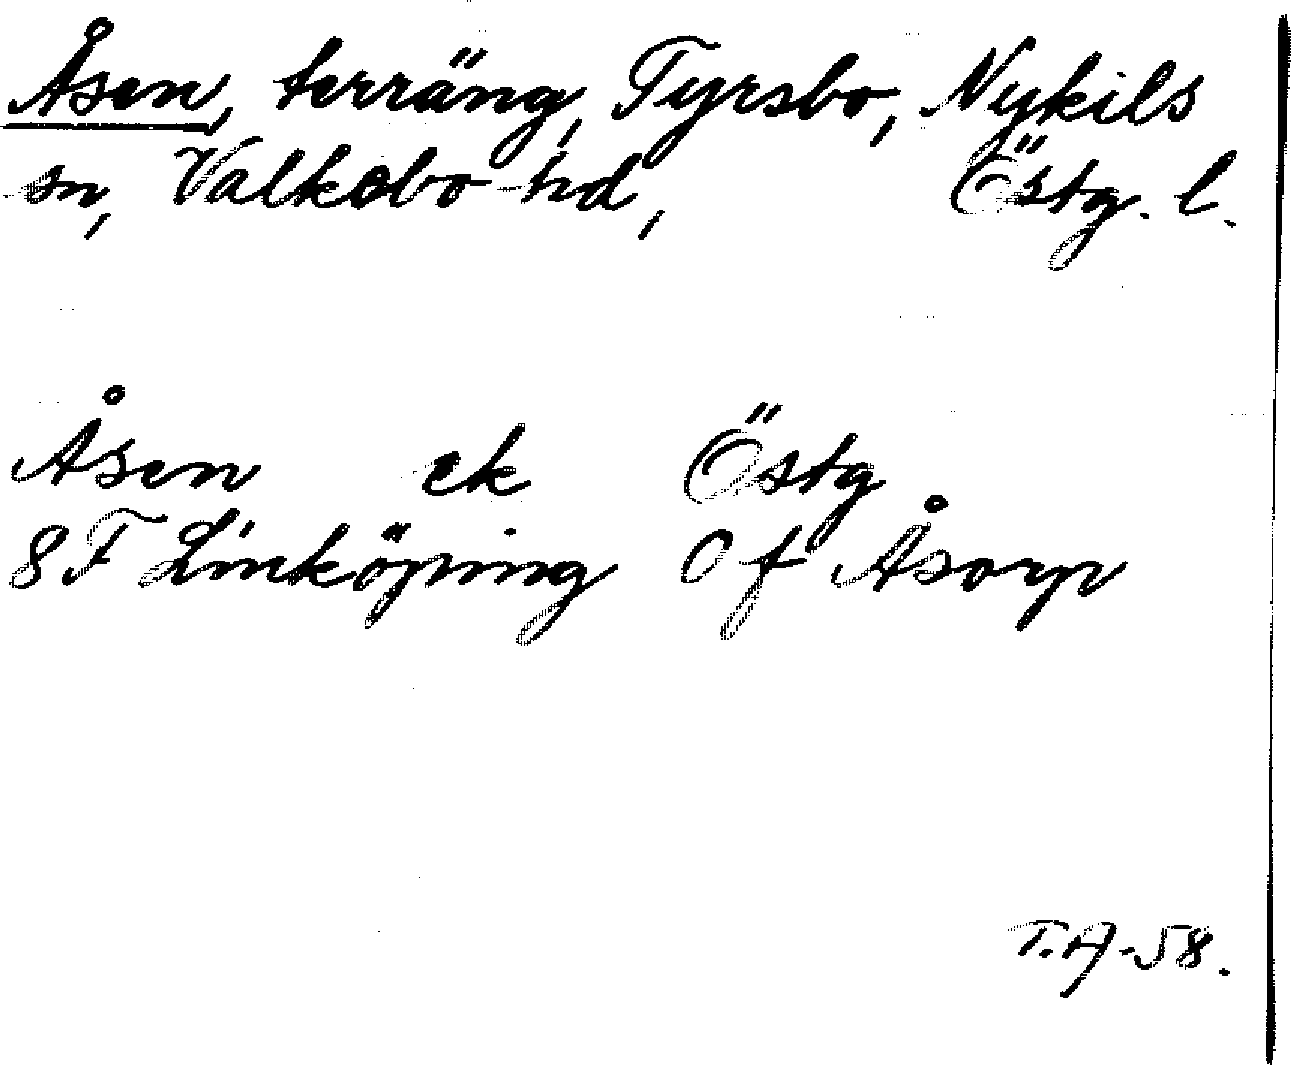 Åsen, terräng, Tyrsbo, Nykils
sn, Valkebo hd, Östg. l.
Åsen ek Östg
8F Linköping Of Åsorp
T.A-58.